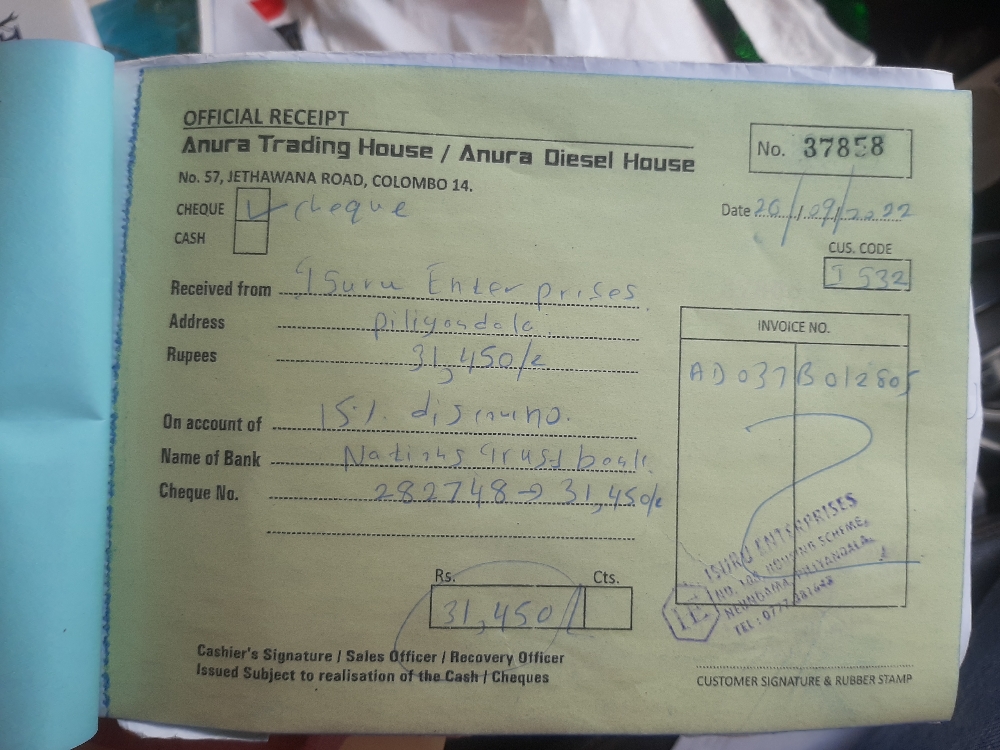 OFFICIAL RECEIPT
Anura Trading House / Anura Diesel House
No. 37858
No. 57, JETHAWANA ROAD, COLOMBO 14.
CHEQUE cheque
Date 20/09/2022
CASH
CUS. CODE
I 532
Received from Isuru Enterprises
Address Piliyandala
Rupees 31,450/=
INVOICE NO.
AD037B012805
On account of 15%
Name of Bank Nations Trust bank.
Cheque No. 282748 → 31,450/=
ISURU ENTERPRISES
HOUSING SCHEME,
PILIYANDALA.
IE
Rs. Cts.
31,450/
Cashier's Signature / Sales Officer / Recovery Officer
Issued Subject to realisation of the Cash / Cheques
CUSTOMER SIGNATURE & RUBBER STAMP